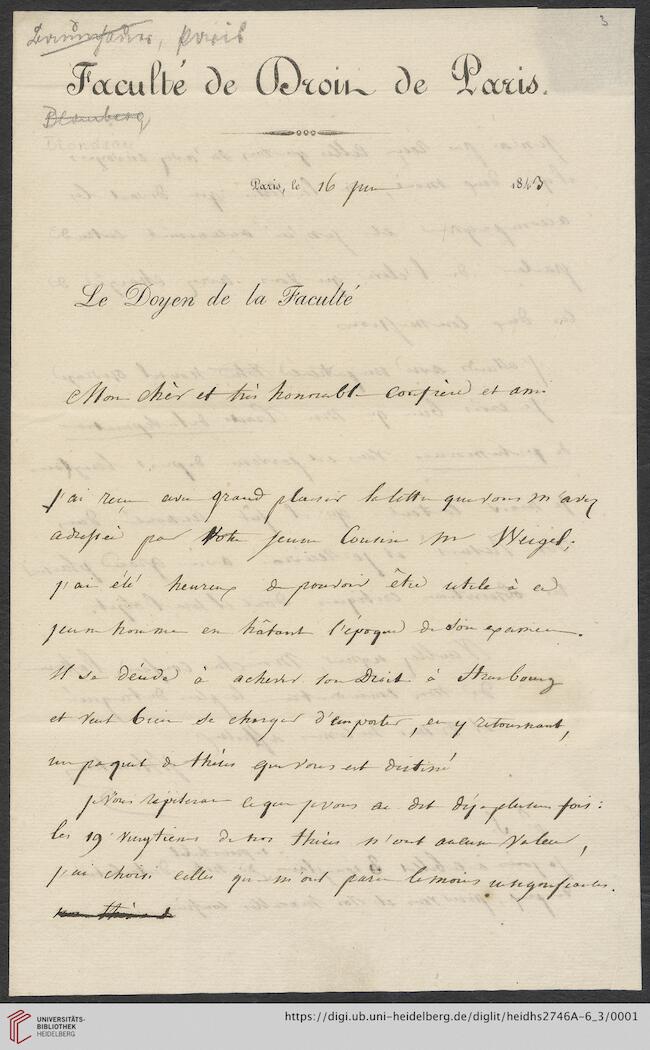 Paris
3
Faculté de Droit de Paris.
Blondeau
Paris, le 16 juin 1843
Le Doyen de la Faculté
Mon cher et très honorable confrère et ami
j'ai reçu avec grand plaisir la lettre que vous m'avez
adressée par Votre jeune Cousin Mr Weigel;
j'ai été heureux de pouvoir être utile à ce
jeune homme en hâtant l'époque de son examen.
Il se décide à achever son Droit à Strasbourg
et veut bien se charger d'emporter, en y retournant,
un paquet de thèses qui vous est destiné
je vous répéterai ce que je vous ai dit déjà plusieurs fois :
les 19 vingtièmes de nos thèses n'ont aucune valeur,
j'ai choisi celles qui m'ont paru le moins insignifiantes.
UNIVERSITÄTS-
BIBLIOTHEK
HEIDELBERG
https://digi.ub.uni-heidelberg.de/diglit/heidhs2746A-6_3/0001